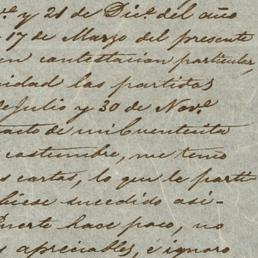 y 21 de Dic.e del año
17 de Marzo del presente
en contestacion particular,
nidad las partidas
de Julio y 30 de Nov.e
acto de mi Cuentecita
costumbre, me temo
s cartas, lo que le parti
biese sucedido asi-
uerte hace poco, no
s apreciables, é ignoro